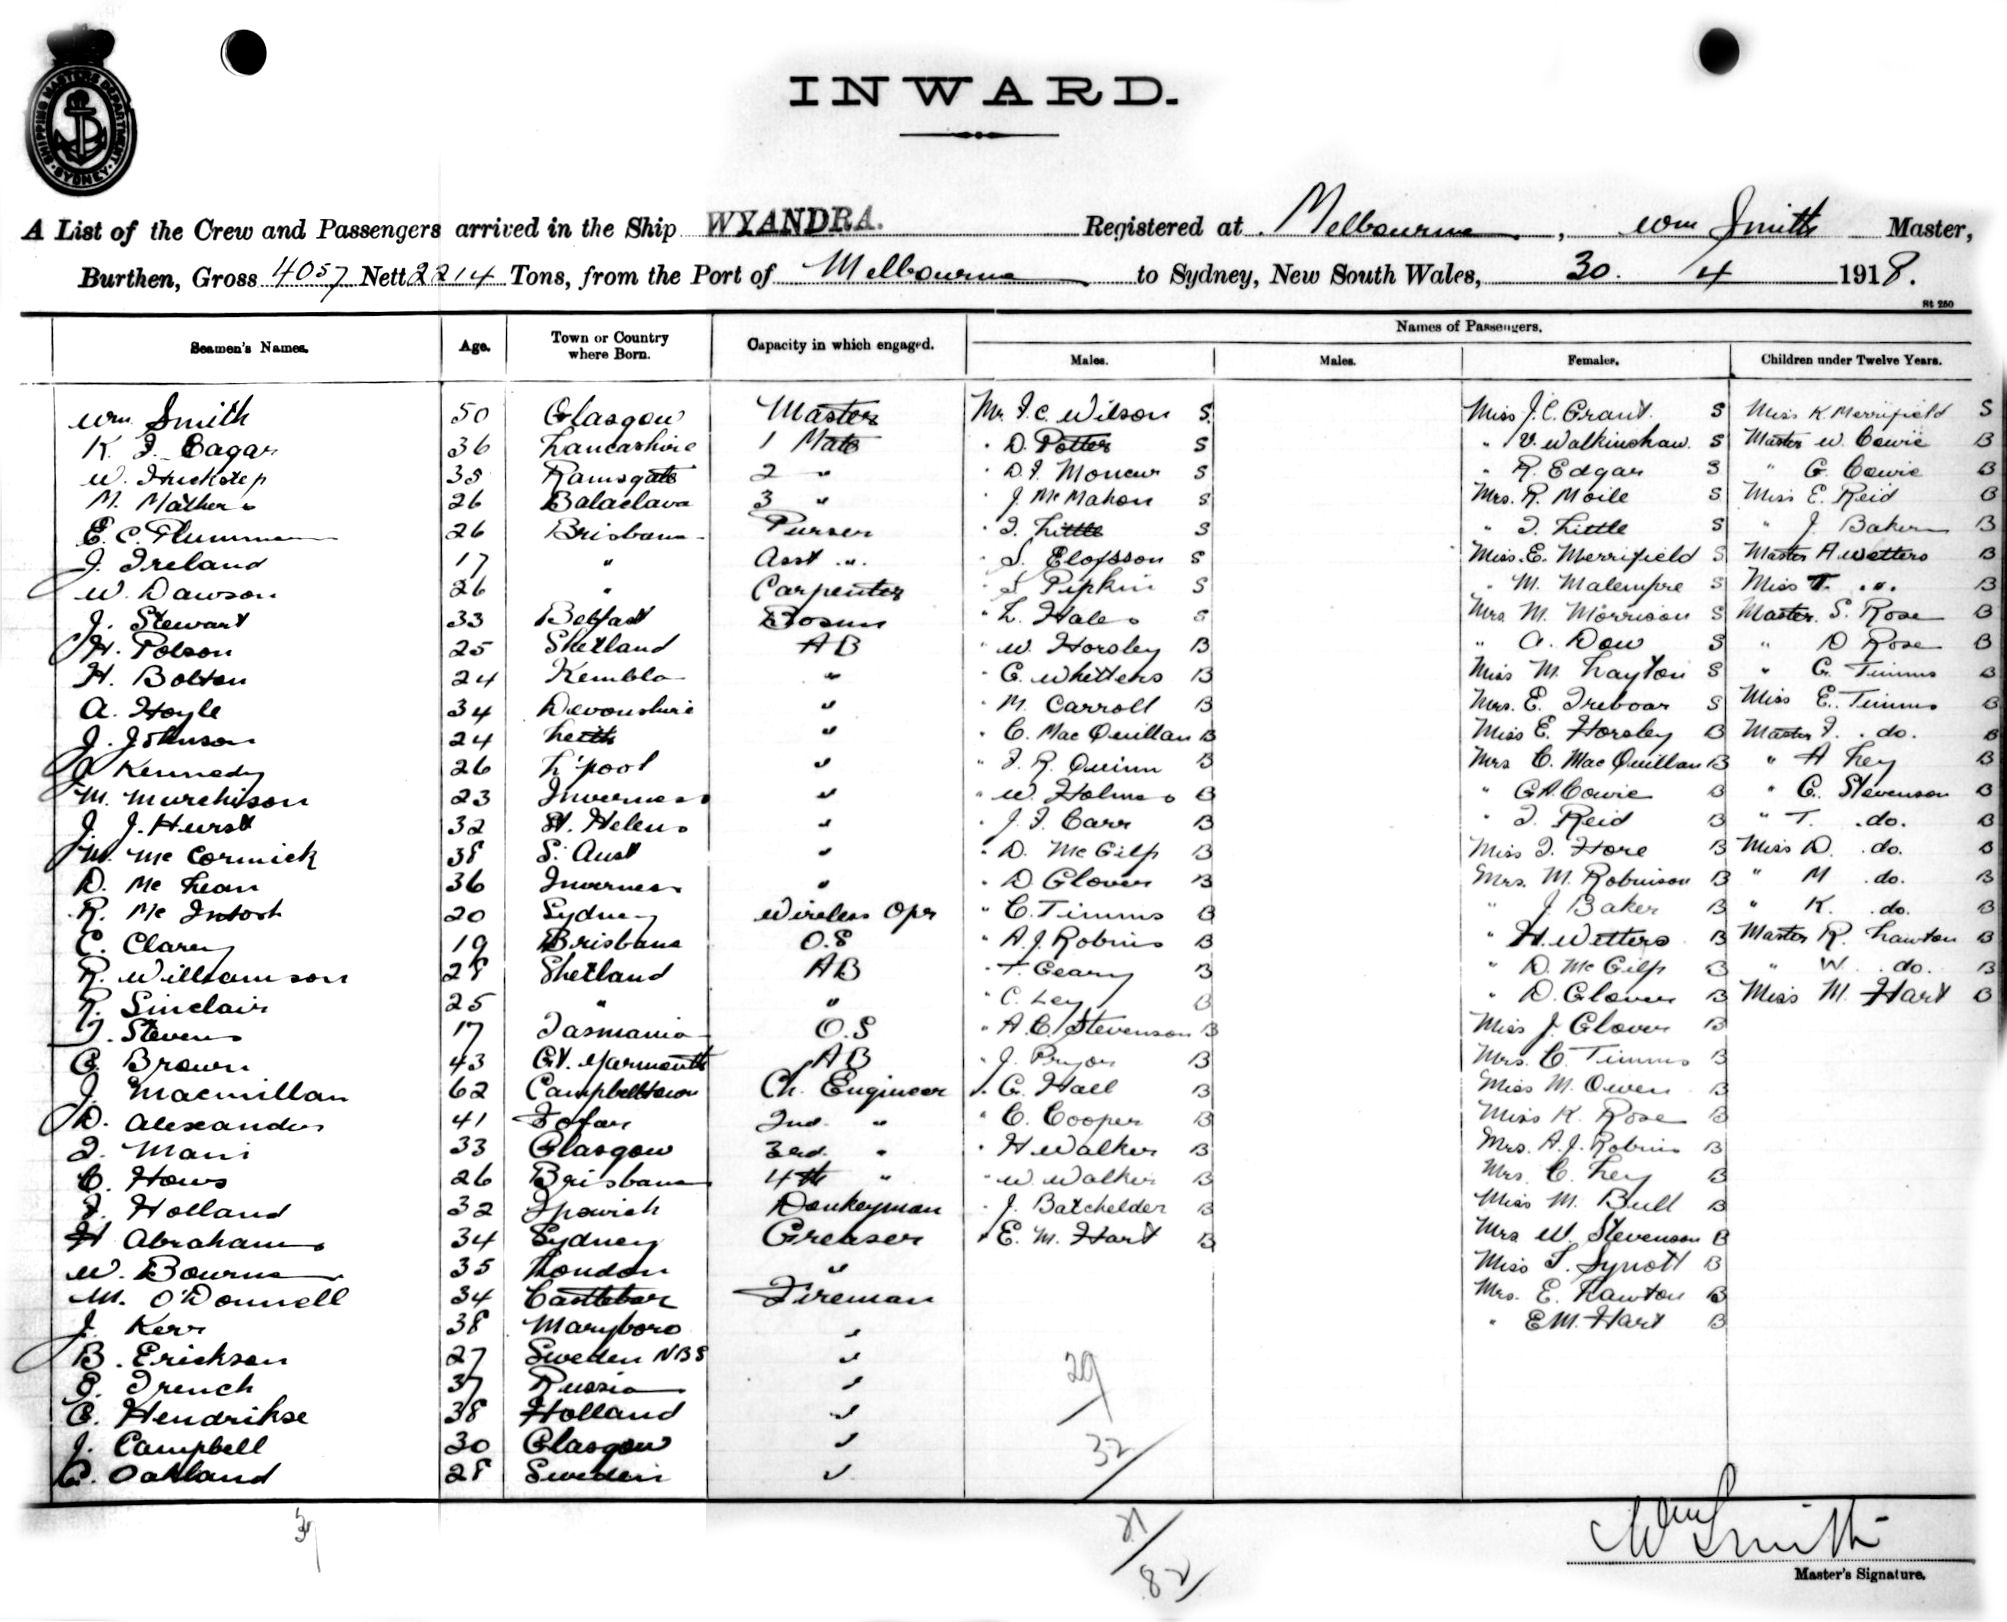 SHIPPING MASTERS DEPARTMENT SYDNEY
INWARD.
A List of the Crew and Passengers arrived in the Ship WYANDRA. Registered at Melbourne, Wm Smith Master,
Burthen, Gross 4057 Nett 2214 Tons, from the Port of Melbourne to Sydney, New South Wales, 30. 4 1918.
St 250
Names of Passengers.
Seamen's Names. Age. Town or Country where Born. Capacity in which engaged. Males. Males. Females. Children under Twelve Years.
Wm Smith 50 Glasgow Master Mr. F. C. Wilson S Miss J. C. Grant. S Miss K. Merrifield S
K. F. Cagar 36 Lancashire 1 Mate " D. Potter S " V. Walkinshaw. S Master W. Cowie B
W. Huckstep 35 Ramsgate 2 " " D. F. Moncur S " R. Edgar S " G. Cowie B
M. Mathers 26 Balaclava 3 " " J. McMahon S Mrs. R. Moile S Miss E. Reid B
E. C. Plummer 26 Brisbane Purser " F. Little S " F. Little S " J. Baker B
J. Ireland 17 " Asst " " S. Elofsson S Miss. E. Merrifield S Master A Wetters B
W. Dawson 26 " Carpenter " S Pipkin S " M. Malempre S Miss T. " B
J. Stewart 33 Belfast Bosun " L. Hales S Mrs. M. Morrison S Master. S. Rose B
H. Polson 25 Shetland AB " W. Horsley B " A. Dow S " D Rose B
H. Bolton 24 Kembla " " G. Whetters B Miss M. Layton S " G. Timms B
A. Hoyle 34 Devonshire " " M. Carroll B Mrs. E. Treboar S Miss E. Timms B
J. Johnson 24 Leith " " C. MacQuillan B Miss E. Horsley B Master F. do. B
J Kennedy 26 L'pool " " F. R. Quinn B Mrs C. MacQuillan B " A Ley B
M. Murchison 23 Inverness " " W. Holmes B " G A Cowie B " G. Stevenson B
J. J. Hurst 32 St. Helens " " J. F. Carr B " F. Reid B " T. do. B
M. McCormick 38 S. Aust " " D. McGilp B Miss F. Hore B Miss D. do. B
D. McLean 36 Inverness " " D Glover B Mrs. M. Robinson B " M do. B
R. McIntosh 20 Sydney Wireless Opr " C. Timms B " J. Baker B " K. do. B
C. Clarey 19 Brisbane O.S " A. J. Robins B " H. Wetters B Master R. Lawton B
R. Williamson 28 Shetland AB " T. Geary B " D. McGilp B " W. do. B
R. Sinclair 25 " " " C. Ley B " D. Glover B Miss M. Hart B
F. Stevens 17 Tasmania O.S " A. C. Stevenson B Miss J. Glover B
G. Brown 43 Gt. Yarmouth AB " J. Pryor B Mrs. C. Timms B
J. Macmillan 62 Campbelltown Ch. Engineer " G. Hall B Miss M. Owen B
D. Alexander 41 Fofar 2nd. " " C. Cooper B Miss K. Rose B
F. Mani 33 Glasgow 3rd. " " H Walker B Mrs. A. J. Robins B
C. Haws 26 Brisbane 4th " " W Walker B Mrs. C. Ley B
F. Holland 32 Ipswich Donkeyman " J. Batchelder B Miss M. Bull B
H Abrahams 34 Sydney Greaser " E. M. Hart B Mrs W. Stevenson B
W. Bourne 35 London " Miss T. Synott B
M. O'Donnell 34 Castlebar Fireman Mrs. E. Lawton B
J. Kerr 38 Maryboro " " E M. Hart B
B. Erickson 27 Sweden NBS "
G. French 37 Russia "
C. Hendrikse 38 Holland "
J. Campbell 30 Glasgow "
C. Oakland 28 Sweden "
29
32
21
82
Wm Smith
Master's Signature.